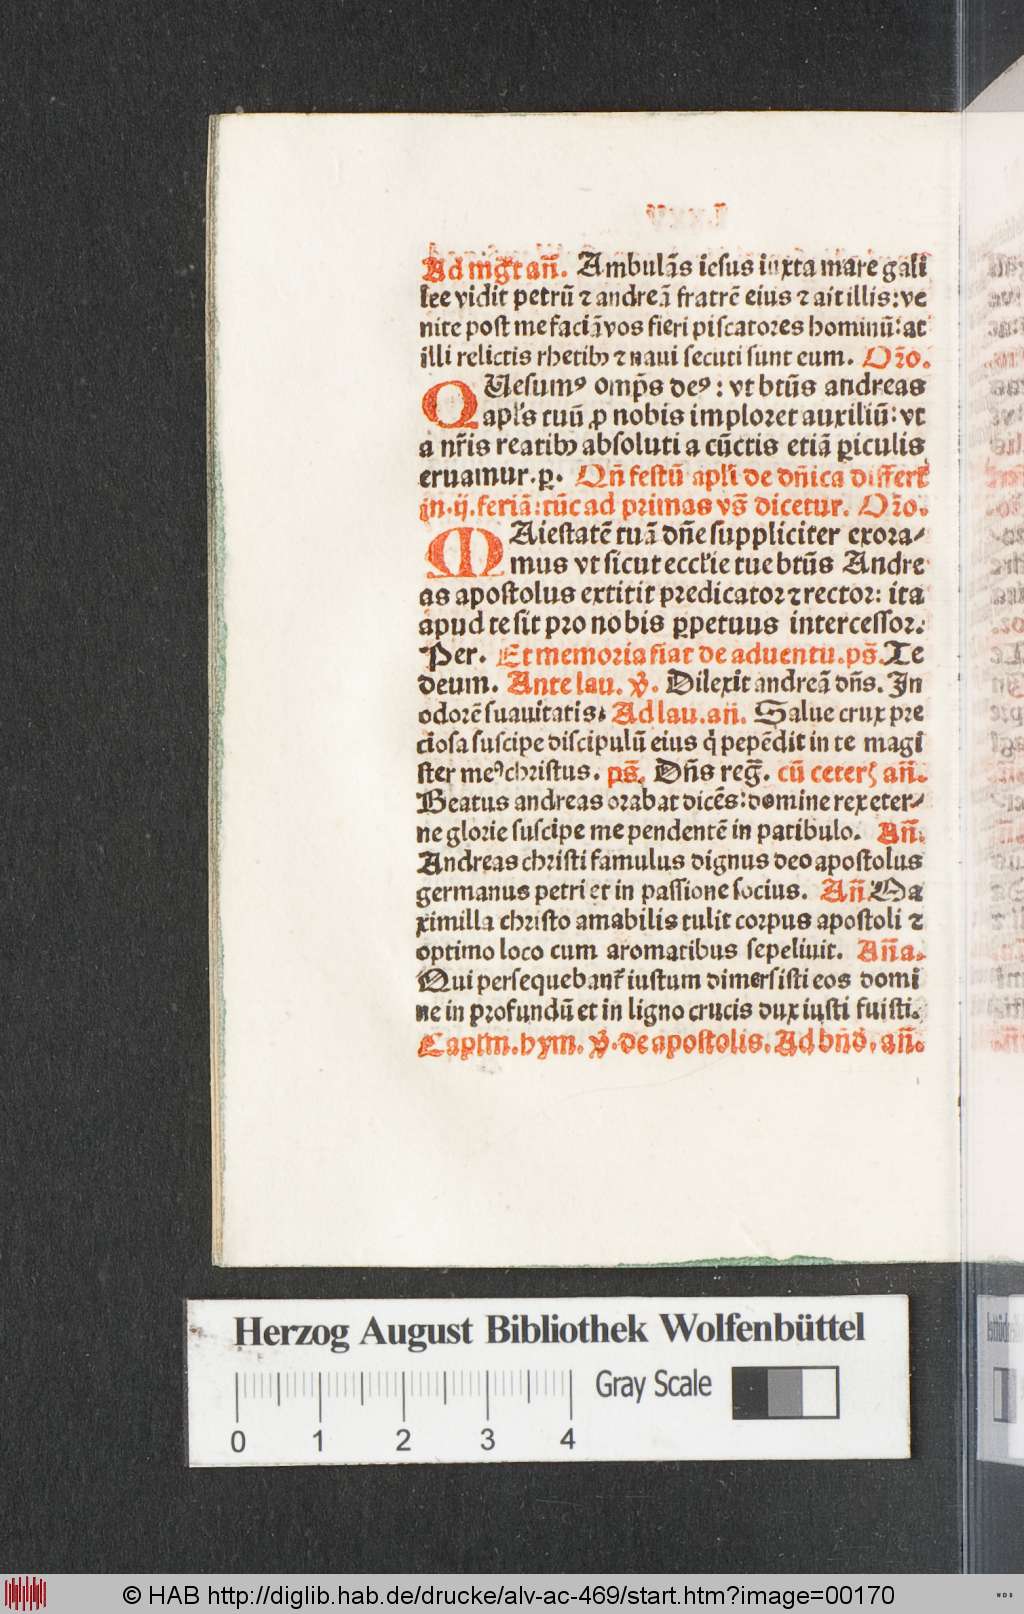 Ad mgͣt añ. Ambulãs iesus iuxta mare gali
lee vidit petrũ ⁊ andreã fratrẽ eius ⁊ ait illis: ve
nite post me faciã vos fieri piscatores hominũ: at
illi relictis rhetibꝫ ⁊ naui secuti sunt eum. Oro̅.
QUesumꝰ omp̅s deꝰ: vt btũs andreas
apl̅s tuũ ꝓ nobis imploret auxiliũ: vt
a nr̅is reatibꝫ absoluti a cũctis etiã ꝑiculis
eruamur. ꝑ. Qñ festũ apl̅i de dñica differt᷑
in .ij. feriã: tũc ad primas vs̅ dicetur. Oro̅.
MAiestatẽ tuã dñe suppliciter exora⸗
mus vt sicut eccl̅ie tue btũs Andre
as apostolus extitit predicator ⁊ rector: ita
apud te sit pro nobis ꝑpetuus intercessor.
Per. Et memoria fiat de aduentu. ps̅. Te
deum. Ante lau. ꝟ. Dilexit andreã dñs. In
odorẽ suauitatis. Ad lau. añ. Salue crux pre
ciosa suscipe discipulũ eius q̇ pepẽdit in te magi
ster meꝰ christus. ps̅. Dñs reg̅. cũ ceterꝭ añ.
Beatus andreas orabat dicẽs: domine rex eter⸗
ne glorie suscipe me pendentẽ in patibulo. Añ.
Andreas christi famulus dignus deo apostolus
germanus petri et in passione socius. Añ Ma
ximilla christo amabilis tulit corpus apostoli ⁊
optimo loco cum aromatibus sepeliuit. Añna.
Qui persequebant᷑ iustum dimersisti eos domi
ne in profundũ et in ligno crucis dux iusti fuisti.
Capl̅m. hym. ꝟ. de apostolis. Ad bñd. añ.
Herzog August Bibliothek Wolfenbüttel
Gray Scale
0 1 2 3 4
© HAB http://diglib.hab.de/drucke/alv-ac-469/start.htm?image=00170